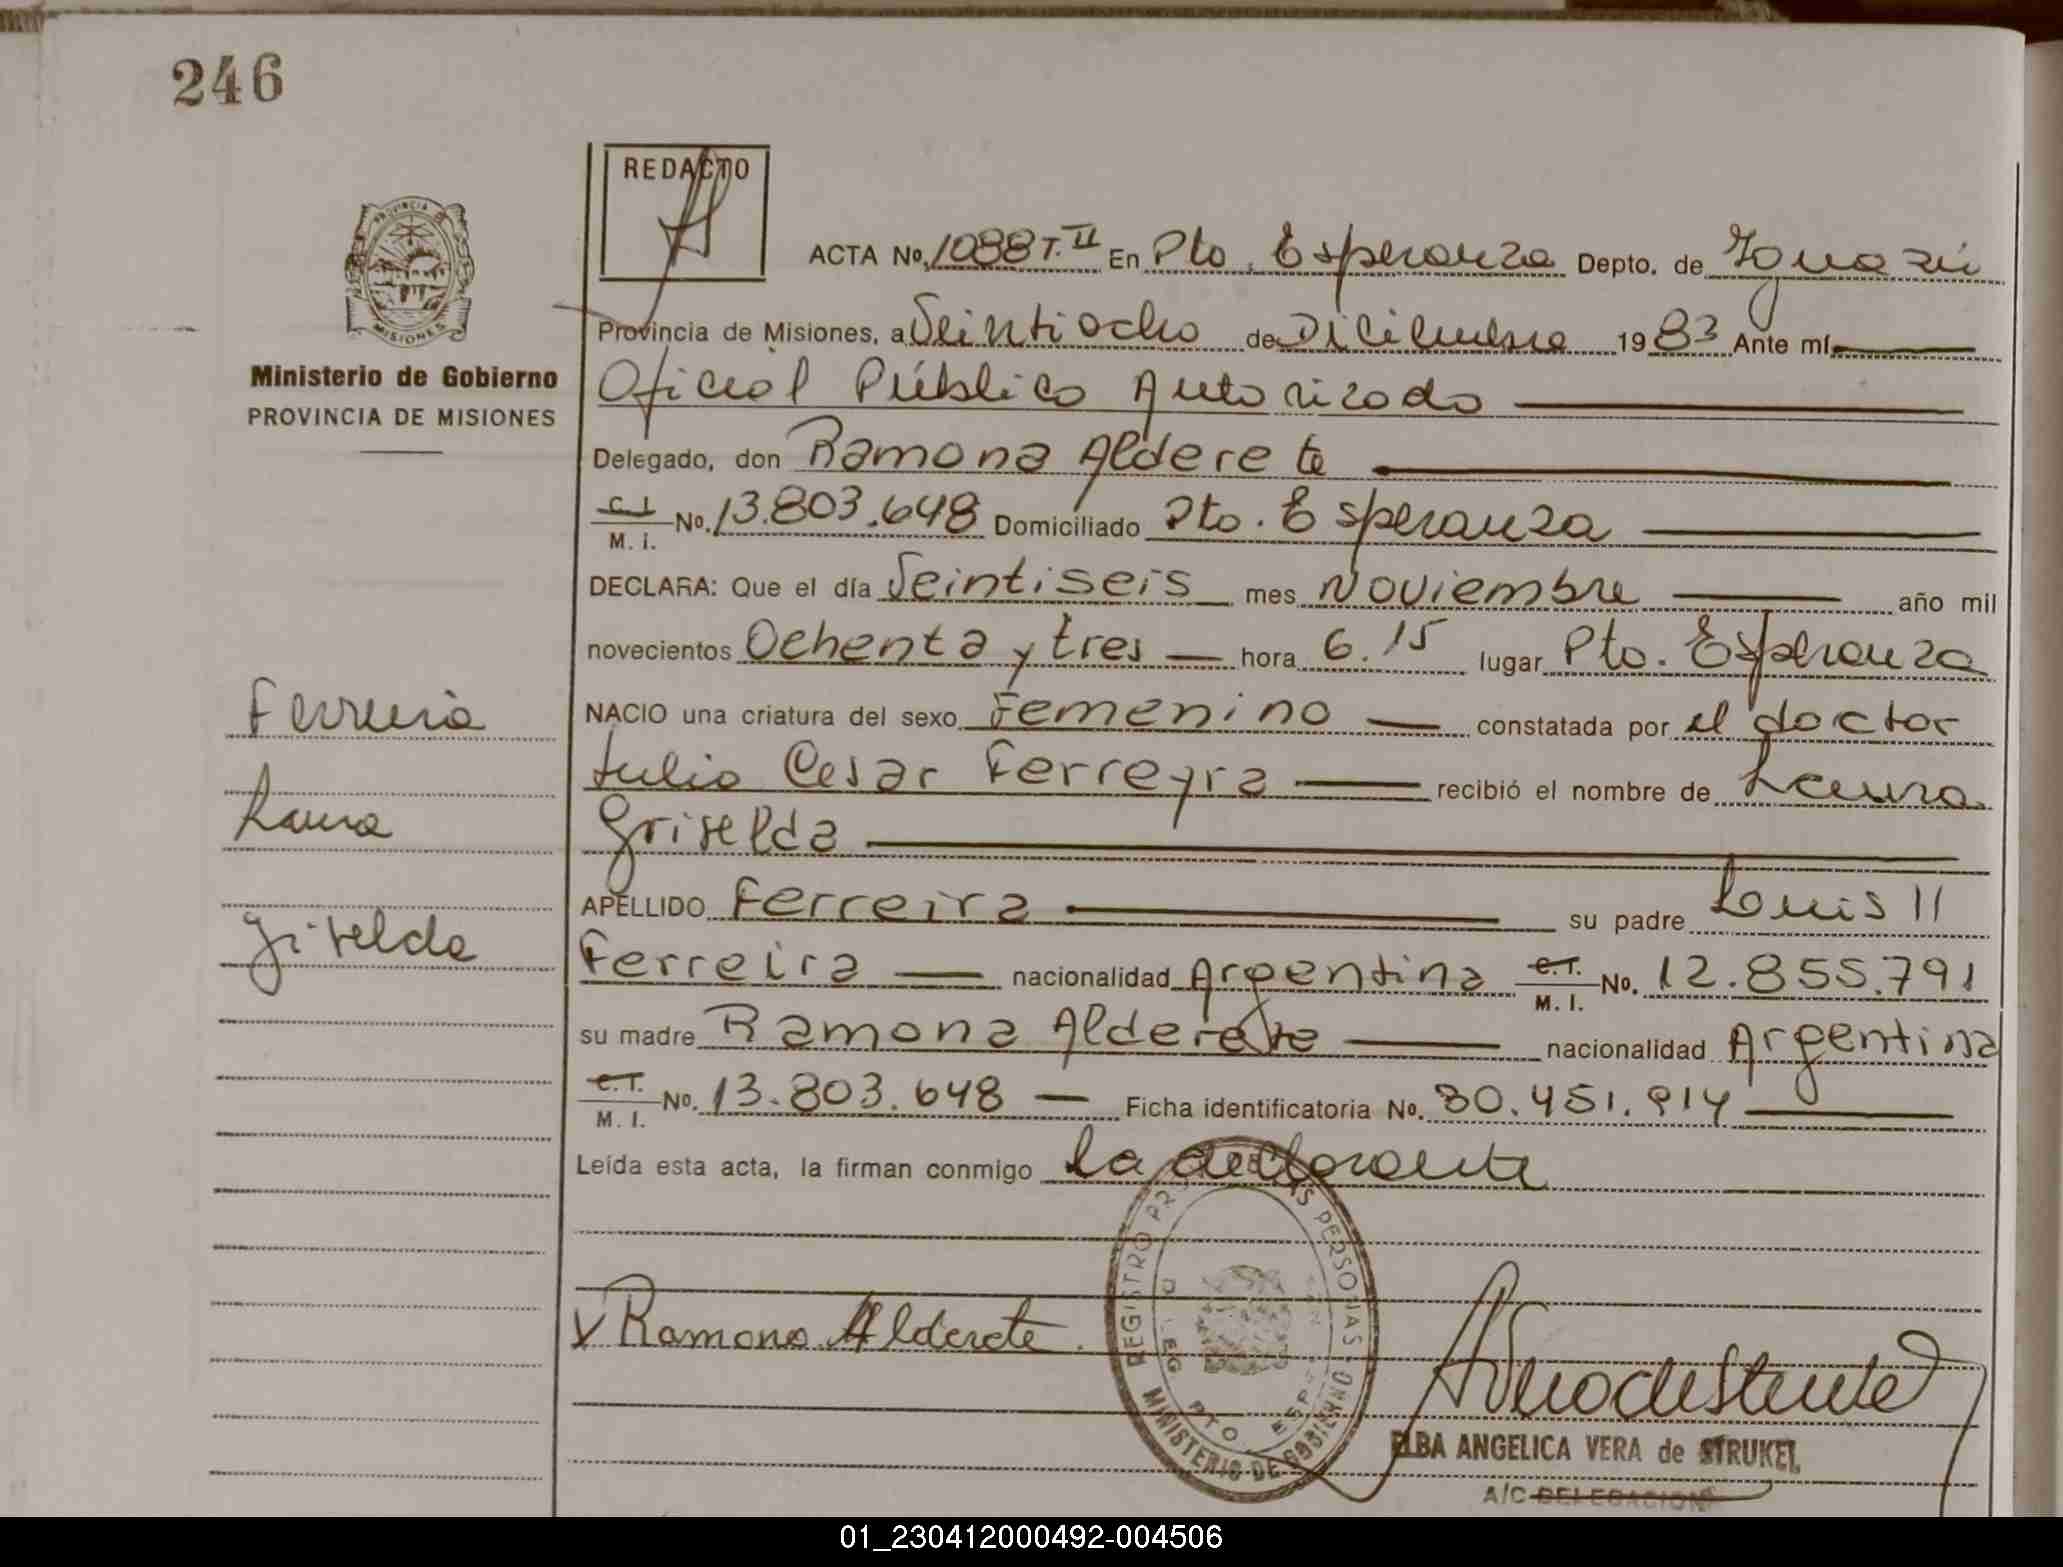 246
REDACTO
PROVINCIA DE
MISIONES
Ministerio de Gobierno
PROVINCIA DE MISIONES
ACTA No. 1088 T. II En Pto. Esperanza Depto. de Iguazú
Provincia de Misiones, a Veintiocho de Diciembre 1983 Ante mí
Oficial Público Autorizado
Delegado, don Ramona Alderete
C. I. M. I. No. 13.803.648 Domiciliado Pto. Esperanza
DECLARA: Que el día Veintiseis mes Noviembre año mil
novecientos Ochenta y tres hora 6.15 lugar Pto. Esperanza
NACIO una criatura del sexo Femenino constatada por el doctor
Julio Cesar Ferreyra recibió el nombre de Laura
Griselda
APELLIDO Ferreira su padre Luis
Ferreira nacionalidad Argentina C.I. M. I. No. 12.855.791
su madre Ramona Alderete nacionalidad Argentina
C.I. M. I. No. 13.803.648 Ficha identificatoria No. 30.451.914
Leída esta acta, la firman conmigo la declarante
Ferreira
Laura
Griselda
Ramona Alderete
REGISTRO PROV. DE LAS PERSONAS
MINISTERIO DE GOBIERNO
DELEG. PTO ESP
ELBA ANGELICA VERA de STRUKEL
A/C DELEGACION
01_230412000492-004506